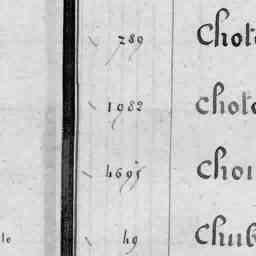 289 Chot
1982 Chot
4695 Chou
le 49 Chub